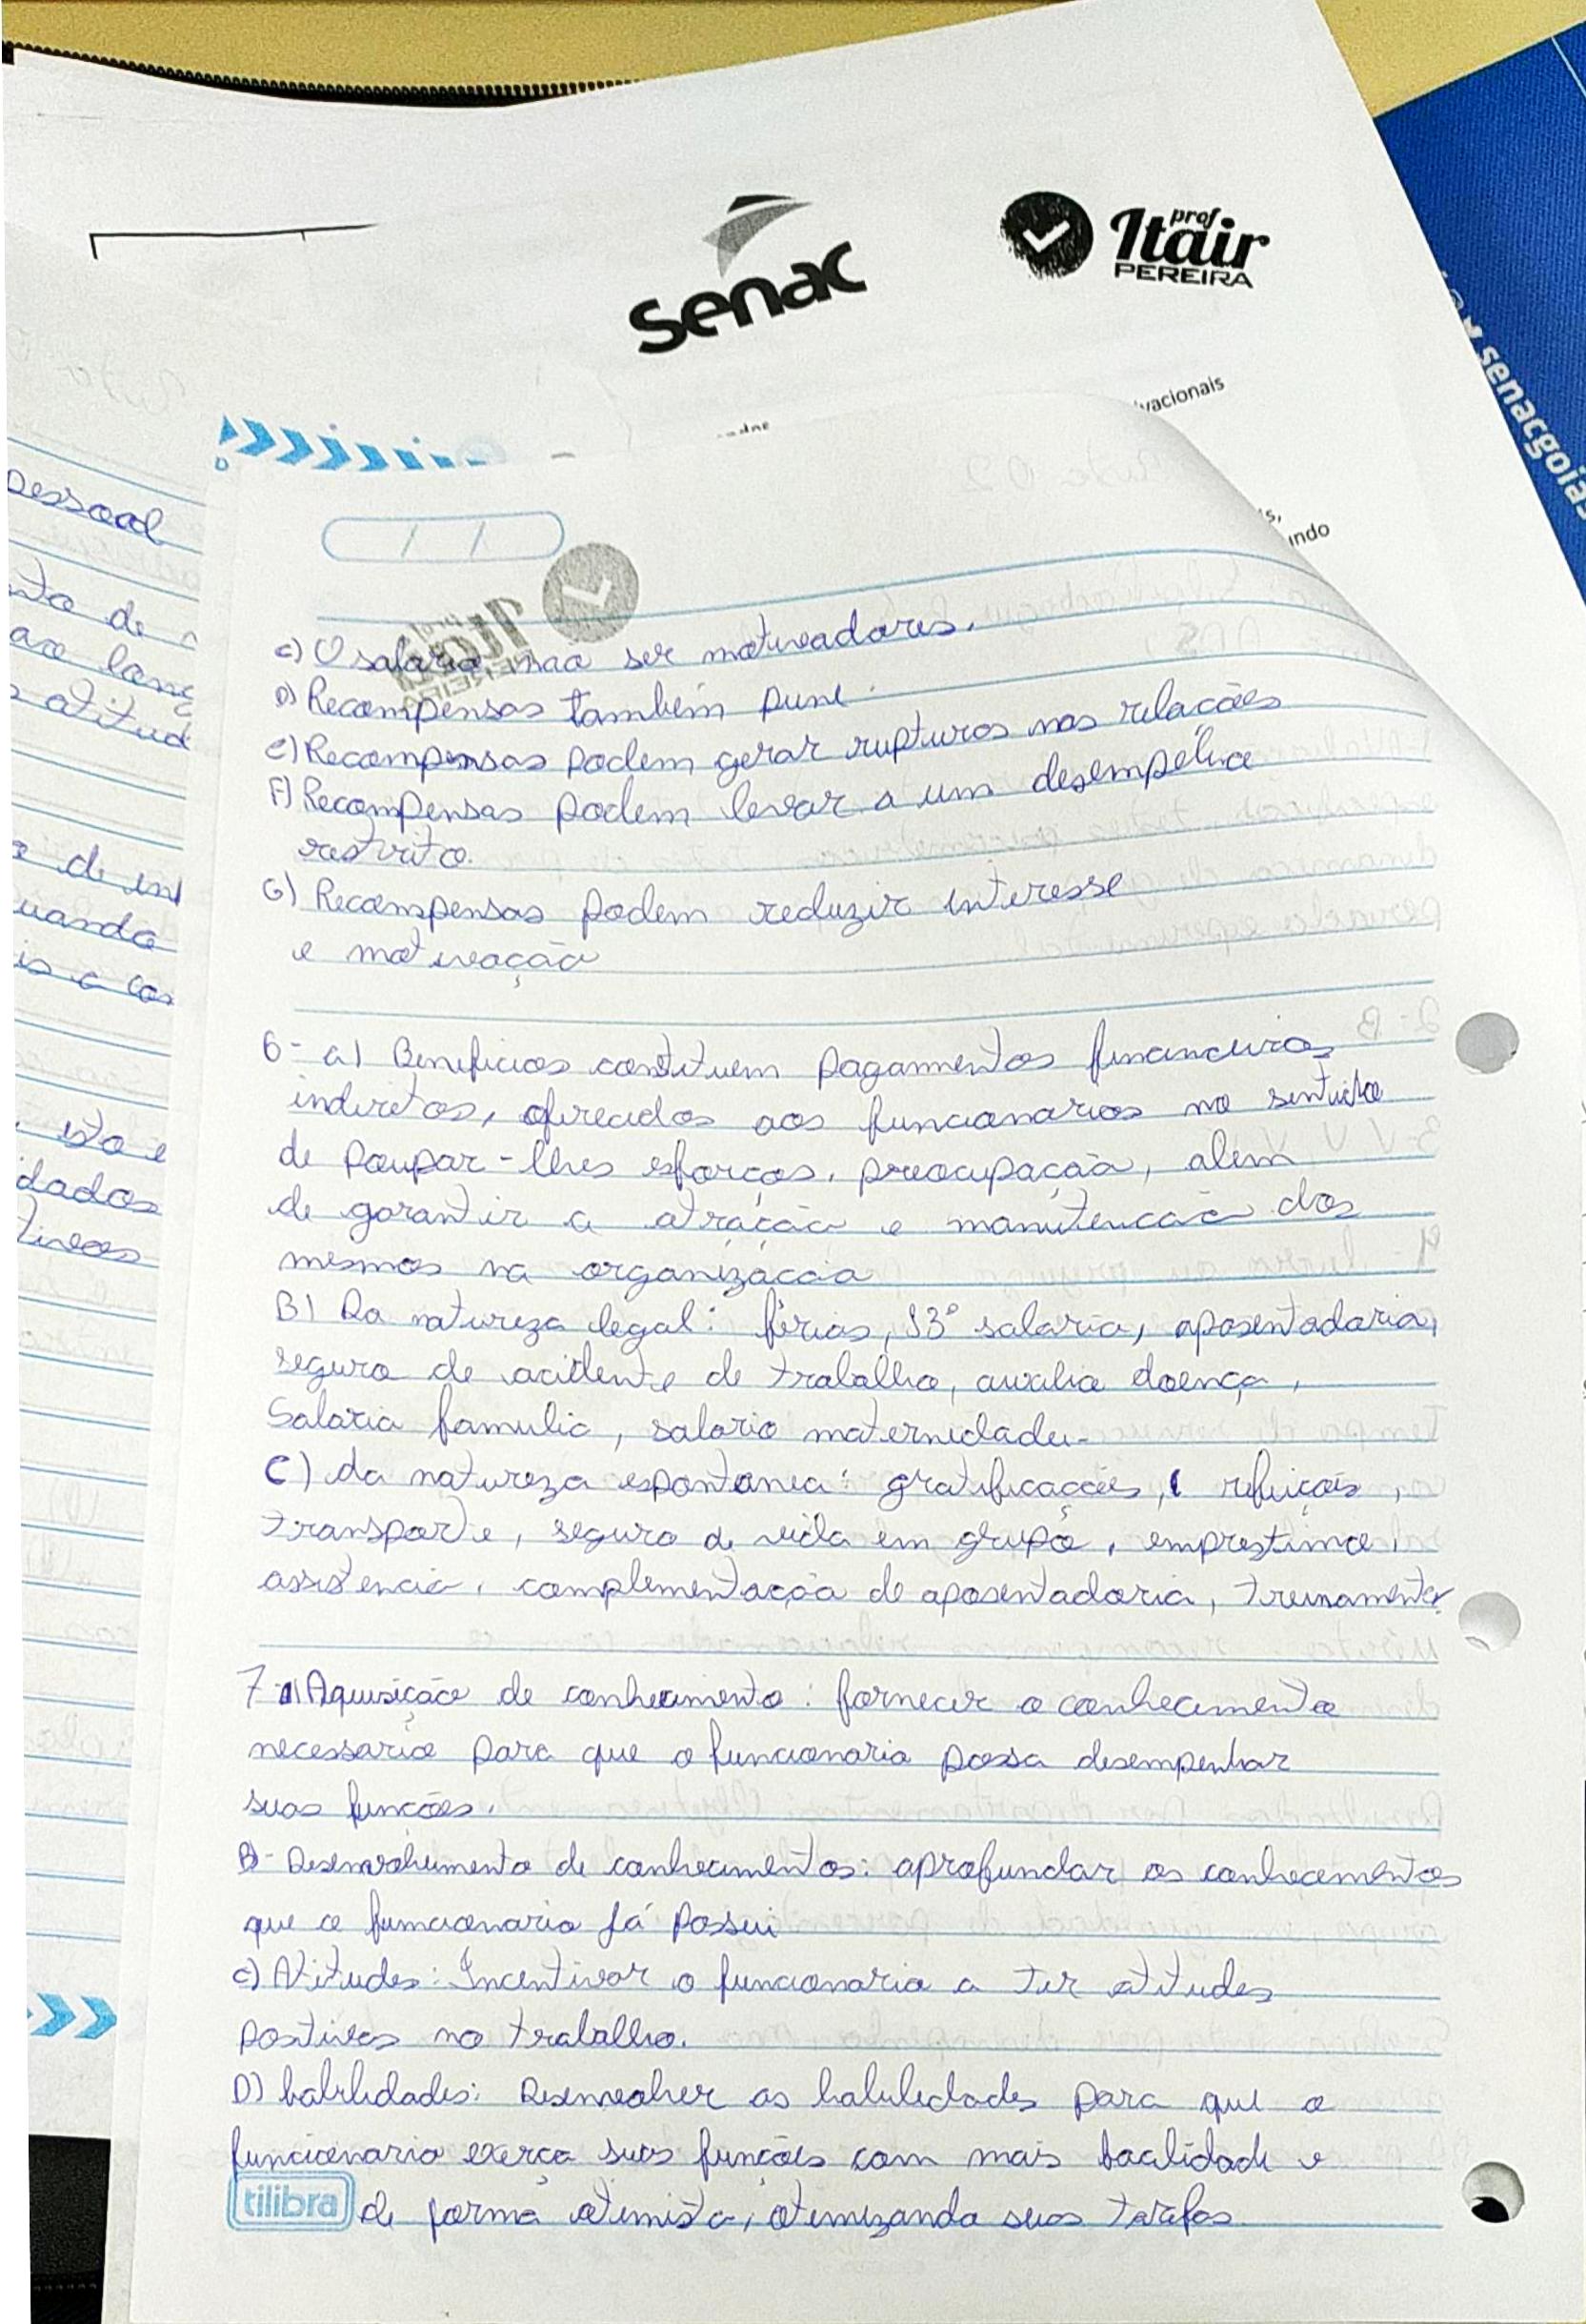 senac
prof
Itair
PEREIRA
senacgoias
vacionais
indo
pessoal
de
atitud
uando
dados
c) O salario não ser motivadores.
D) Recompensas também pune.
E) Recompensas podem gerar rupturos nas relacões
F) Recompensas podem levar a um desempelho
restrito.
G) Recompensas podem reduzir interesse
e motivação
6- a) Beneficios constituem pagamentos financeiros
indiretos, oferecidos aos funcionarios no sentido
de poupar-lhes esforços, preocupação, alem
de garantir a atração e manutenção dos
mesmos na organização
B) Da natureza legal: férias, 13º salario, aposentadoria,
seguro de acidente de trabalho, auxalio doença,
Salario familia, salario maternidade.
C) da natureza espontanea: gratificações, refeições,
transporte, seguro de vida em grupo, emprestimo,
assistencia, complementação de aposentadoria, treinamento.
7- Aquisição de conhecimento: fornecer o conhecimento
necessario para que o funcionario possa desempenhar
suas funções.
B- Desenvolvimento de conhecimentos: aprofundar os conhecimentos
que o funcionario já possui
c) Atitudes: Incentivar o funcionario a ter atitudes
postivas no trabalho.
D) habilidades: Desenvolver as habilidades para que o
funcionario exerça suas funções com mais facilidade e
tilibra de forma otimista, otimizando suas tarefas.